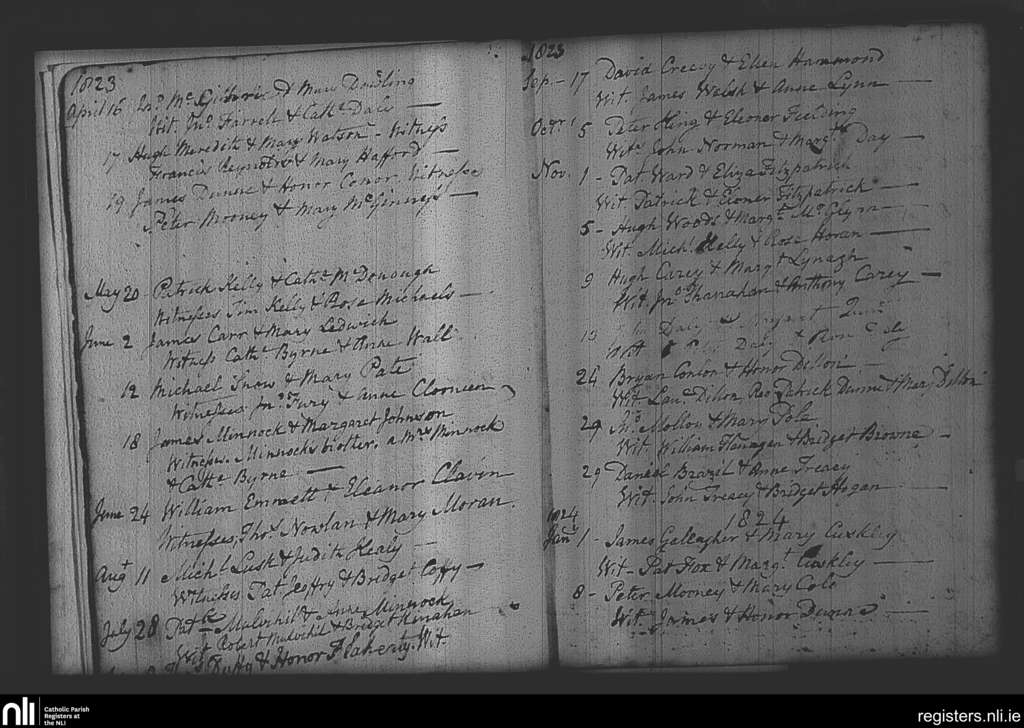 1823
April 16 Jno. Mc Mary Dowling
Wit. Jno. Farrell & Cathe. Dals —
17 Hugh Meredith & Mary Watson - Witness
Francis Reynolds & Mary Hafford —
19 James Dunne & Honor Conor. Witnesse
Peter Mooney & Mary McGinnyss —
May 20 Patrick Kelly & Cathe. McDonough
Witnesses Tim Kelly & Rose Michaels —
June 2 James Carr & Mary Ledwick
Witness Cathe. Byrne & Anne Wall
12 Michael Snow & Mary Pate
Witnesses, Jno. Fury & Anne Clooneen
18 James Minnock & Margaret Johnson
Witness. Minnocks brother. a Mrs Minnock
& Cathe Byrne —
June 24 William Emmett & Eleanor Claven
Witnesses, Thos. Nowlan & Mary Moran.
Augt 11 Michl Lusk & Judith Healy —
Witnesses Pat Jeoffry & Bridget Coffy —
July 28 Patk Mulvihil & Anne Minnock
Wit Robert Mulvihil & Bridget Kenahan
Duffy & Honor Flaherty. Wit.
1823
Sep - 17 David Creevy & Ellen Hammond
Wit. James Walsh & Anne Lynn —
Octr. 5 Peter King & Eleoner Fielding
Wits John Norman & Margt. Day —
Nov. 1 - Pat Ward & Eliza Fitzpatrick
Wit Patrick & Eleoner Fitzpatrick —
5 - Hugh Woods & Margt. McGlynn —
Wit. Michl. Kelly & Rose Horan —
9 Hugh Carey & Margt Lynagh
Wit Jno. Shanahan & Anthony Carey —
13 Daly & Quin
Wit Daly &
24 Bryan Conion & Honor Dillon —
Wit Lau. Dillon Revd Patrick Dunne & Mary Dillon
29 Jno. Molloy & Mary Pole
Wit. William Flanagan & Bridget Browne —
29 Daniel Brazil & Anne Treacy
Wit. John Treacy & Bridget Hogan —
1824
1824
Jany 1 - James Gallagher & Mary Cuskley
Wit - Pat Fox & Margt Cuskley —
8 - Peter Mooney & Mary Cole
Wit. James & Honor Dunne —
nli
Catholic Parish
Registers at
the NLI
registers.nli.ie